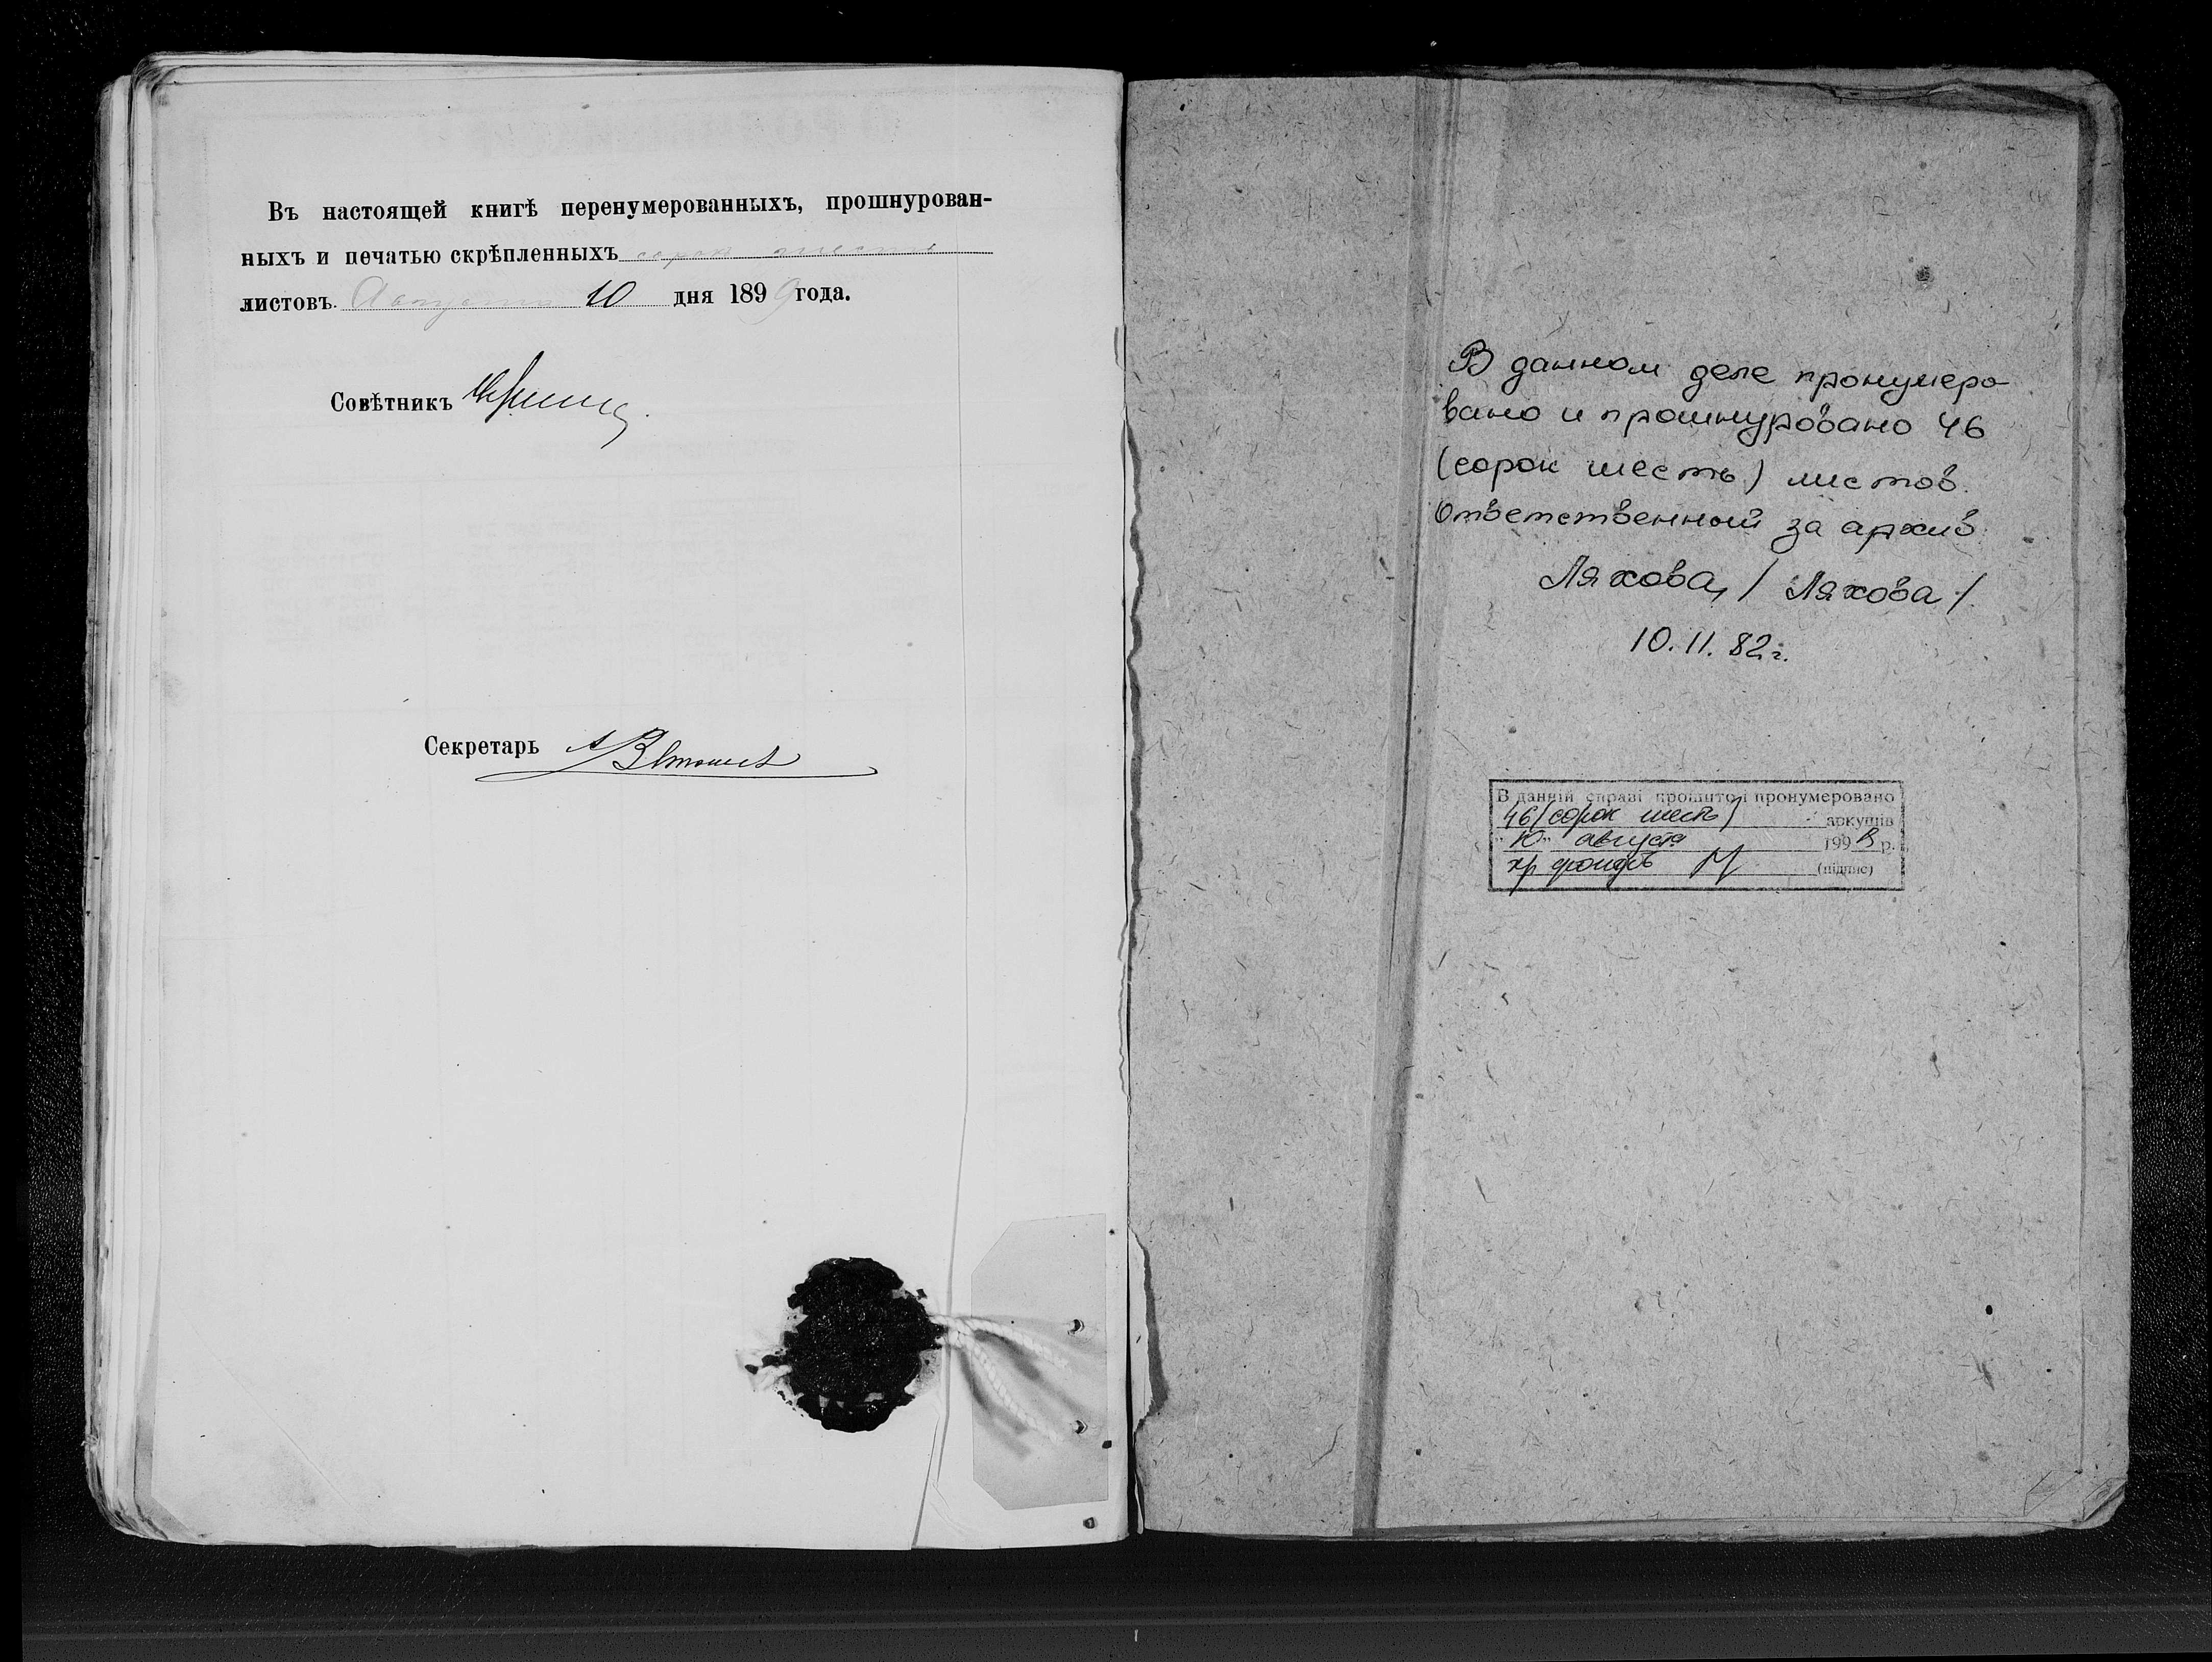 Въ настоящей книгѣ перенумерованныхъ, прошнурован-
ныхъ и печатью скрѣпленныхъ сорок шесть
листовъ. Августа 10 дня 1899 года.
Совѣтникъ
Секретарь
В данном деле пронумеро-
вано и прошнуровано 46
(сорок шесть) листов.
Ответственный за архив
Ляхова / Ляхова /
10.11.82 г.
В данній справі прошито і пронумеровано
46 (сорок шесть) аркушів
"10" августа 199 р.
хр фондов (підпис)